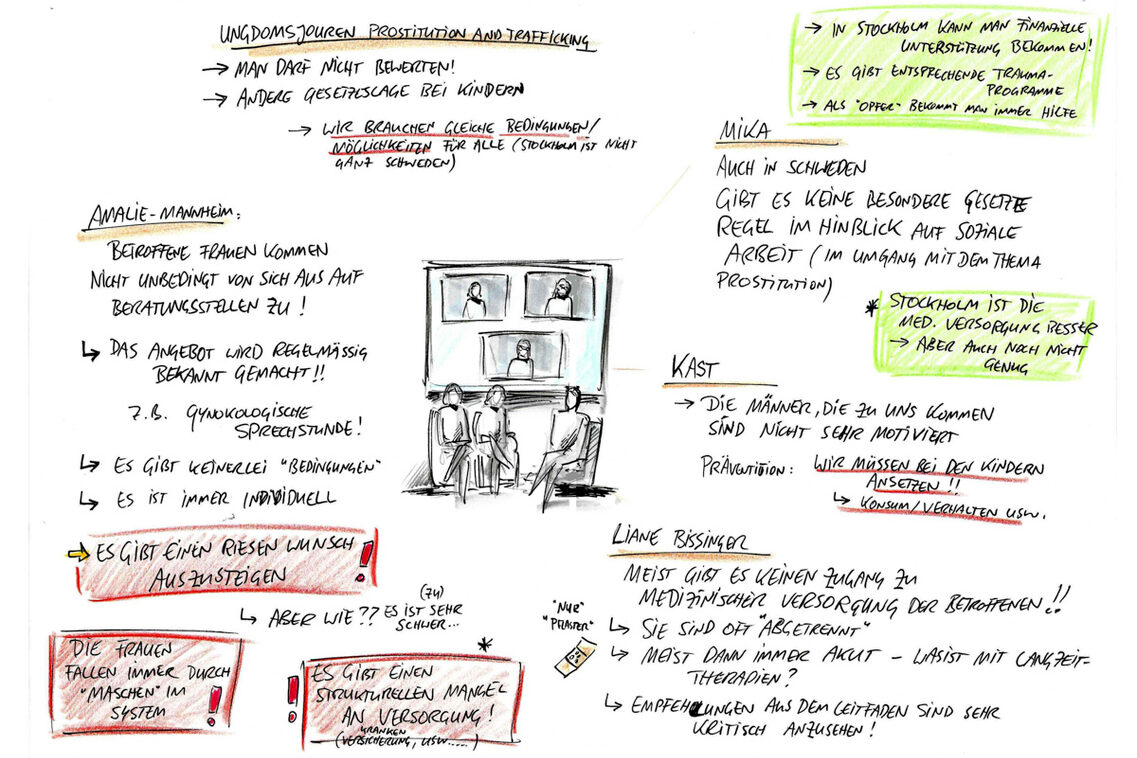 UNGDOMSJOUREN PROSTITUTION AND TRAFFICKING
→ MAN DARF NICHT BEWERTEN!
→ ANDERE GESETZESLAGE BEI KINDERN
→ WIR BRAUCHEN GLEICHE BEDINGUNGEN/
MÖGLICHKEITEN FÜR ALLE (STOCKHOLM IST NICHT
GANZ SCHWEDEN)
→ IN STOCKHOLM KANN MAN FINANZIELLE
UNTERSTÜTZUNG BEKOMMEN!
→ ES GIBT ENTSPRECHENDE TRAUMA-
PROGRAMME
→ ALS "OPFER" BEKOMMT MAN IMMER HILFE
MIKA
AUCH IN SCHWEDEN
GIBT ES KEINE BESONDERE GESETZTE
REGEL IM HINBLICK AUF SOZIALE
ARBEIT (IM UMGANG MIT DEM THEMA
PROSTITUTION)
* STOCKHOLM IST DIE
MED. VERSORGUNG BESSER
→ ABER AUCH NOCH NICHT
GENUG
AMALIE-MANNHEIM:
BETROFFENE FRAUEN KOMMEN
NICHT UNBEDINGT VON SICH AUS AUF
BERATUNGSSTELLEN ZU!
↳ DAS ANGEBOT WIRD REGELMÄSSIG
BEKANNT GEMACHT!!
Z.B. GYNOKOLOGISCHE
SPRECHSTUNDE!
↳ ES GIBT KEINERLEI "BEDINGUNGEN"
↳ ES IST IMMER INDIVIDUELL
→ ES GIBT EINEN RIESEN WUNSCH
AUSZUSTEIGEN !
↳ ABER WIE?? ES IST (ZU) SEHR
SCHWER...
DIE FRAUEN
FALLEN IMMER DURCH
"MASCHEN" IM
SYSTEM !
*
! ES GIBT EINEN
STRUKTURELLEN MANGEL
AN VERSORGUNG!
(KRANKENVERSICHERUNG, USW.....)
KAST
→ DIE MÄNNER, DIE ZU UNS KOMMEN
SIND NICHT SEHR MOTIVIERT
PRÄVENTION: WIR MÜSSEN BEI DEN KINDERN
ANSETZEN!!
↳ KONSUM/VERHALTEN USW.
LIANE BISSINGER
MEIST GIBT ES KEINEN ZUGANG ZU
MEDIZINISCHER VERSORGUNG DER BETROFFENEN!!
↳ SIE SIND OFT "ABGETRENNT"
"NUR"
"PFLASTER"
↳ MEIST DANN IMMER AKUT – WAS IST MIT LANGZEIT-
THERAPIEN?
↳ EMPFEHLUNGEN AUS DEM LEITFADEN SIND SEHR
KRITISCH ANZUSEHEN!